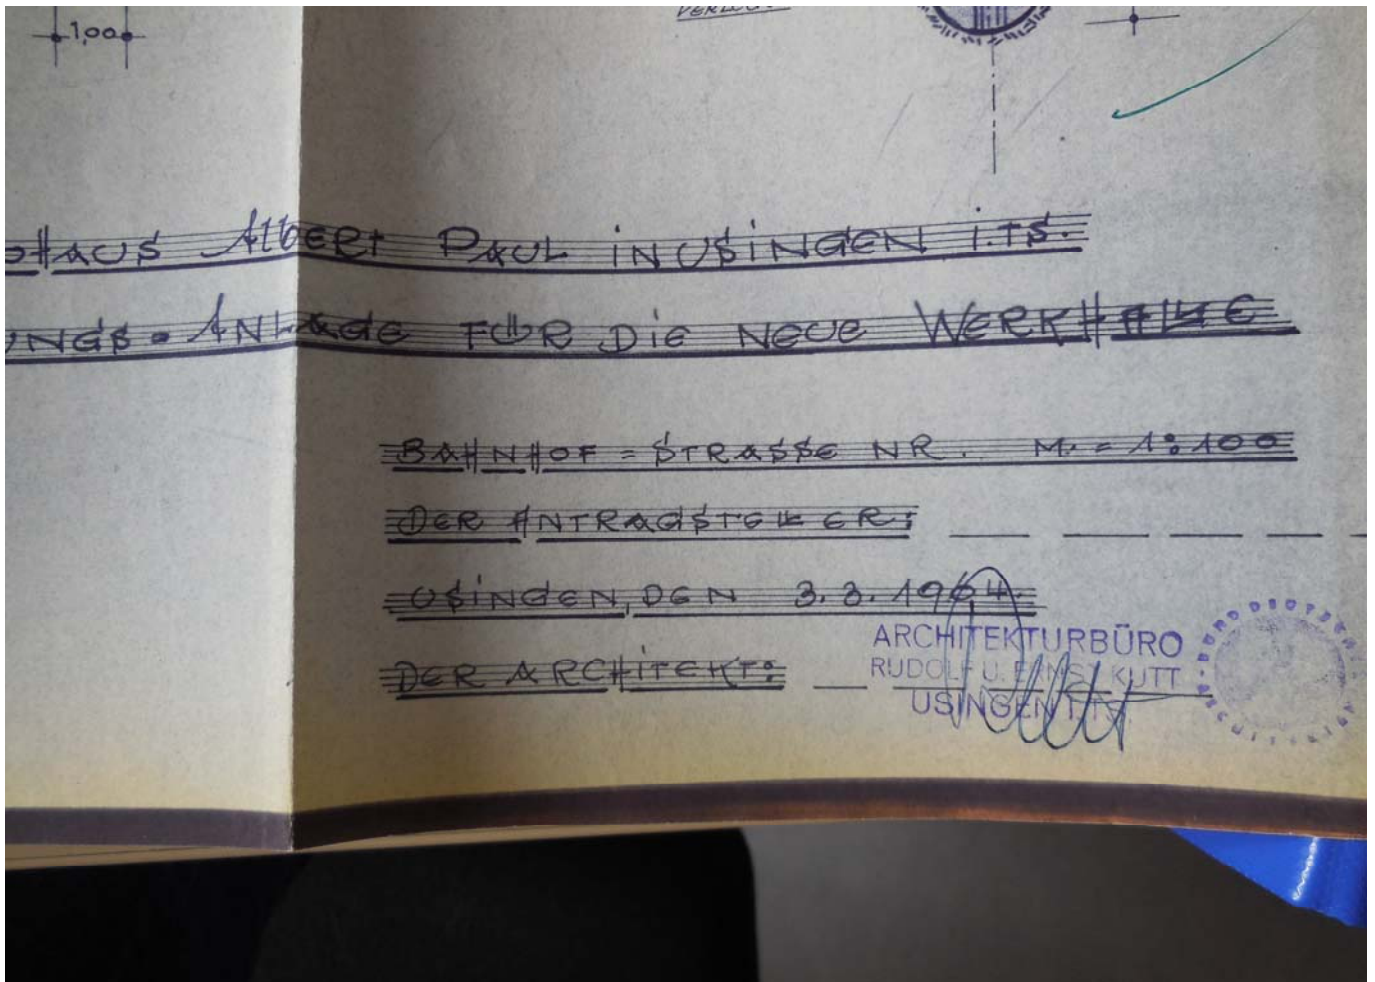 1,00
OHAUS Albert PAUL iN USiNGEN i.TS.
UNGS=ANLAGE FÜR DiE NEUE WERKHALLE
BAHNHOF=STRASSE NR. M.=1:100
DER ANTRAGSTELLER:
USiNGEN, DEN 3.3.1964.
ARCHITEKTURBÜRO
RUDOLF U. ERNST KUTT
USINGEN
DER ARCHiTEKT: